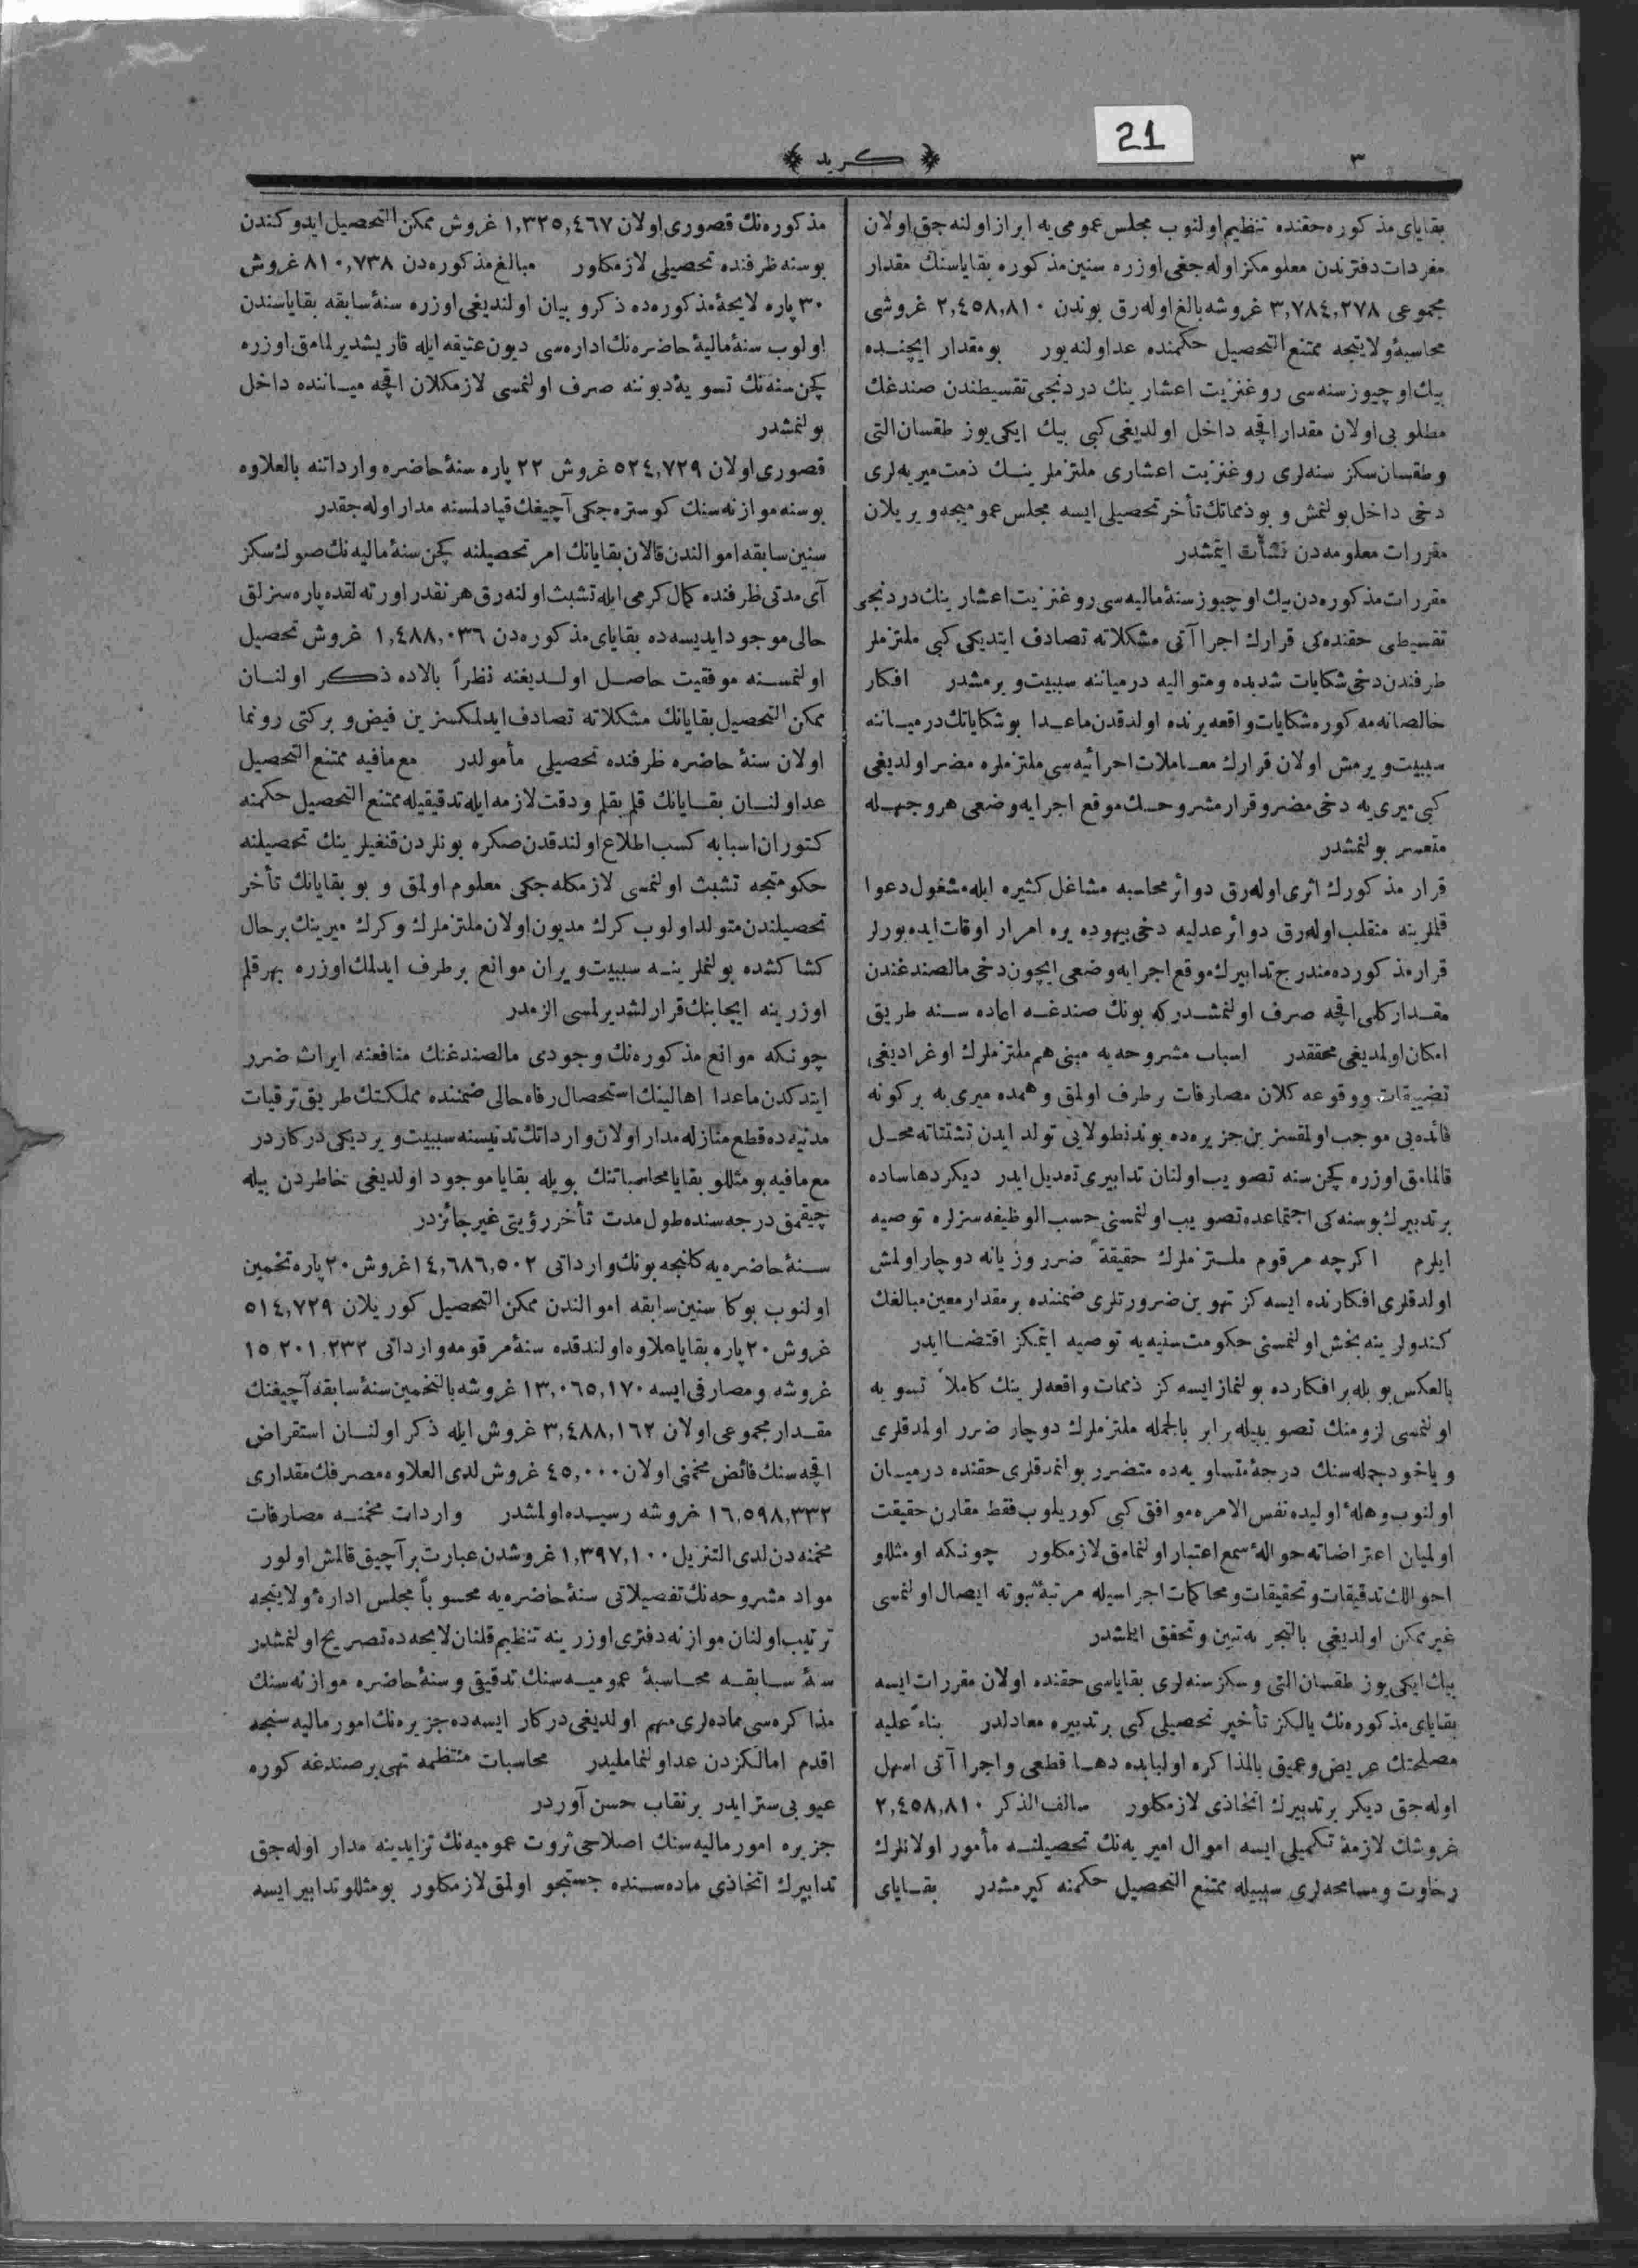 21
٣
﴿ كريد ﴾
بقایای مذكوره حقنده تنظیم اولنوب مجلس عمومی یه ابراز اولنه جق اولان
مفردات دفترندن معلومكز اوله جغی اوزره سنین مذكوره بقایاسنك مقدار
مجموعی ٣,٧٨٤,٢٧٨ غروشه بالغ اوله رق بوندن ٢,٤٥٨,٨١٠ غروشی
محاسبهٔ ولایتجه ممتنع التحصیل حكمنده عد اولنه یور بو مقدار ایچنده
بیك اوچیوز سنه سی روغنزیت اعشارینك دردنجی تقسیطندن صندغك
مطلوبی اولان مقدار اقچه داخل اولدیغی كبی بیك ایكی یوز طقسان التی
و طقسان سكز سنه لری روغنزیت اعشاری ملتزملرینك ذمت میریه لری
دخی داخل بولنمش و بو ذمماتك تأخر تحصیلی ایسه مجلس عمومیجه ویریلان
مقررات معلومه دن نشأت ایتمشدر
مقررات مذكوره دن بیك اوچیوز سنهٔ مالیه سی روغنزیت اعشارینك دردنجی
تقسیطی حقنده كی قرارك اجراآتی مشكلاته تصادف ایتدیكی كبی ملتزملر
طرفندن دخی شكایات شدیده و متوالیه درمیاننه سببیت ویرمشدر افكار
خالصانه مه كوره شكایات واقعه یرنده اولدقدن ماعدا بو شكایاتك درمیاننه
سببیت ویرمش اولان قرارك معاملات اجرائیه سی ملتزملره مضر اولدیغی
كبی میری یه دخی مضر و قرار مشروحك موقع اجرایه وضعی هر وجهله
متعسر بولنمشدر
قرار مذكورك اثری اوله رق دوائر محاسبه مشاغل كثیره ایله مشغول دعوا
قلملرینه منقلب اوله رق دوائر عدلیه دخی بیهوده یره امرار اوقات ایده یورلر
قرار مذكورده مندرج تدابیرك موقع اجرایه وضعی ایچون دخی مال صندغندن
مقدار كلی اقچه صرف اولنمشدر كه بونك صندغه اعاده سنه طریق
امكان اولمدیغی محققدر اسباب مشروحه یه مبنی هم ملتزملرك اوغرادیغی
تضییقات و وقوعه كلان مصارفات بر طرف اولمق و همده میری یه بر كونه
فائده یی موجب اولمقسزین جزیره ده بوندنطولایی تولد ایدن تشتتاته محل
قالمامق اوزره كچن سنه تصویب اولنان تدابیری تعدیل ایدر دیكر دها ساده
بر تدبیرك بو سنه كی اجتماعده تصویب اولنمسنی حسب الوظیفه سزلره توصیه
ایلرم اكرچه مرقوم ملتزملرك حقیقةً ضرر و زیانه دوچار اولمش
اولدقلری افكارنده ایسه كز تهوین ضرورتلری ضمننده بر مقدار معین مبالغك
كندولرینه بخش اولنمسنی حكومت سنیه یه توصیه ایتمكز اقتضا ایدر
بالعكس بویله بر افكارده بولنماز ایسه كز ذممات واقعه لرینك كاملاً تسویه
اولنمسی لزومنك تصویبیله برابر بالجمله ملتزملرك دوچار ضرر اولمدقلری
و یاخود جمله سنك درجهٔ متساویه ده متضرر بولنمدقلری حقنده درمیان
اولنوب و هلهٔ اولیده نفس الامره موافق كبی كوریلوب فقط مقارن حقیقت
اولمیان اعتراضاته حوالهٔ سمع اعتبار اولنمامق لازمكلور چونكه او مثللو
احوالك تدقیقات و تحقیقات و محاكمات اجراسیله مرتبهٔ ثبوته ایصال اولنمسی
غیر ممكن اولدیغی بالتجربه تبین و تحقق ایلمشدر
بیك ایكی یوز طقسان التی و سكز سنه لری بقایاسی حقنده اولان مقررات ایسه
بقایای مذكوره نك یالكز تأخیر تحصیلی كبی بر تدبیره معادلدر بناءً علیه
مصلحتك عریض و عمیق بالمذاكره اولبابده دها قطعی و اجراآتی اسهل
اوله جق دیكر بر تدبیرك اتخاذی لازمكلور سالف الذكر ٢,٤٥٨,٨١٠
غروشك لازمهٔ تكمیلی ایسه اموال امیریه نك تحصیلنه مأمور اولانلرك
رخاوت و مسامحه لری سببیله ممتنع التحصیل حكمنه كیرمشدر بقایای
مذكوره نك قصوری اولان ١,٣٢٥,٤٦٧ غروش ممكن التحصیل ایدوكندن
بو سنه ظرفنده تحصیلی لازمكلور مبالغ مذكوره دن ٨١٠,٧٣٨ غروش
٣٠ پاره لایحهٔ مذكوره ده ذكر و بیان اولندیغی اوزره سنهٔ سابقه بقایاسندن
اولوب سنهٔ مالیهٔ حاضره نك اداره سی دیون عتیقه ایله قاریشدیرلمامق اوزره
كچن سنه نك تسویهٔ دیوننه صرف اولنمسی لازمكلان اقچه میاننده داخل
بولنمشدر
قصوری اولان ٥٢٤,٧٢٩ غروش ٢٢ پاره سنهٔ حاضره وارداتنه بالعلاوه
بو سنه موازنه سنك كوستره جكی آچیغك قپادلمسنه مدار اوله جقدر
سنین سابقه اموالندن قالان بقایانك امر تحصیلنه كچن سنهٔ مالیه نك صوك سكز
آی مدتی ظرفنده كمال كرمی ایله تشبث اولنه رق هر نقدر اورته لقده پاره سزلق
حالی موجود ایدیسه ده بقایای مذكوره دن ١,٤٨٨,٠٣٦ غروش تحصیل
اولنمسنه موفقیت حاصل اولدیغنه نظراً بالاده ذكر اولنان
ممكن التحصیل بقایانك مشكلاته تصادف ایدلمكسزین فیض و بركتی رونما
اولان سنهٔ حاضره ظرفنده تحصیلی مأمولدر مع مافیه ممتنع التحصیل
عد اولنان بقایانك قلم بقلم و دقت لازمه ایله تدقیقیله ممتنع التحصیل حكمنه
كتوران اسبابه كسب اطلاع اولندقدن صكره بونلردن قنغیلرینك تحصیلنه
حكومتجه تشبث اولنمسی لازمكله جكی معلوم اولمق و بو بقایانك تأخر
تحصیلندن متولد اولوب كرك مدیون اولان ملتزملرك و كرك میرینك بر حال
كشاكشده بولنملرینه سببیت ویران موانع بر طرف ایدلمك اوزره بهر قلم
اوزرینه ایجابنك قرارلشدیرلمسی الزمدر
چونكه موانع مذكوره نك وجودی مال صندغنك منافعنه ایراث ضرر
ایتدكدن ماعدا اهالینك استحصال رفاه حالی ضمننده مملكتك طریق ترقیات
مدنیه ده قطع منازله مدار اولان وارداتك تدنیسنه سببیت ویردیكی دركاردر
مع مافیه بو مثللو بقایا محاسباتنك بویله بقایا موجود اولدیغی خاطردن بیله
چیقمق درجه سنده طول مدت تأخر رؤیتی غیر جائزدر
سنهٔ حاضره یه كلنجه بونك وارداتی ١٤,٦٨٦,٥٠٢ غروش ٢٠ پاره تخمین
اولنوب بوكا سنین سابقه اموالندن ممكن التحصیل كوریلان ٥١٤,٧٢٩
غروش ٢٠ پاره بقایا علاوه اولندقده سنهٔ مرقومه وارداتی ١٥,٢٠١,٢٣٢
غروشه و مصارفی ایسه ١٣,٠٦٥,١٧٠ غروشه بالتخمین سنهٔ سابقه آچیغنك
مقدار مجموعی اولان ٣,٤٨٨,١٦٢ غروش ایله ذكر اولنان استقراض
اقچه سنك فائض مخمنی اولان ٤٥,٠٠٠ غروش لدی العلاوه مصرفك مقداری
١٦,٥٩٨,٣٣٢ غروشه رسیده اولمشدر واردات مخمنه مصارفات
مخمنه دن لدی التنزیل ١,٣٩٧,١٠٠ غروشدن عبارت بر آچیق قالمش اولور
مواد مشروحه نك تفصیلاتی سنهٔ حاضره یه محسوباً مجلس ادارهٔ ولایتجه
ترتیب اولنان موازنه دفتری اوزرینه تنظیم قلنان لایحه ده تصریح اولنمشدر
سنهٔ سابقه محاسبهٔ عمومیه سنك تدقیقی و سنهٔ حاضره موازنه سنك
مذاكره سی ماده لری مهم اولدیغی دركار ایسه ده جزیره نك امور مالیه سنجه
اقدم امالكزدن عد اولنماملیدر محاسبات منتظمه تهی بر صندغه كوره
عیوبی ستر ایدر بر نقاب حسن آوردر
جزیره امور مالیه سنك اصلاحی ثروت عمومیه نك تزایدینه مدار اوله جق
تدابیرك اتخاذی ماده سنده جستجو اولمق لازمكلور بو مثللو تدابیر ایسه